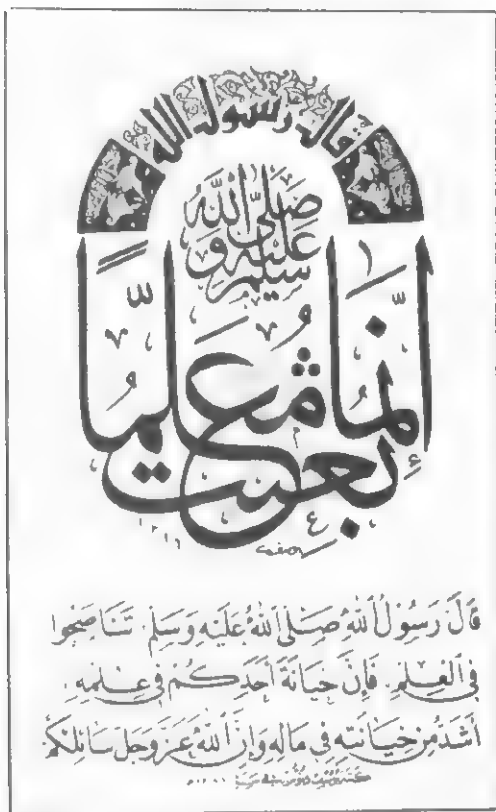 قال رسول الله
صَلَّى اللهُ
عَلَيْهِ وَ
سَلَّمَ
إِنَّمَا بُعِثْتُ مُعَلِّمًا
قَالَ رَسُوْلُ اللهِ صَلَّى اللهُ عَلَيْهِ وَسَلَّمَ. تَنَاصَحُوا
فِي الْعِلْمِ. فَإِنَّ خِيَانَةَ أَحَدِكُمْ فِي عِلْمِهِ.
أَشَدُّ مِنْ خِيَانَتِهِ فِي مَالِهِ وَإِنَّ اللهَ عَزَّ وَجَلَّ سَائِلُكُمْ